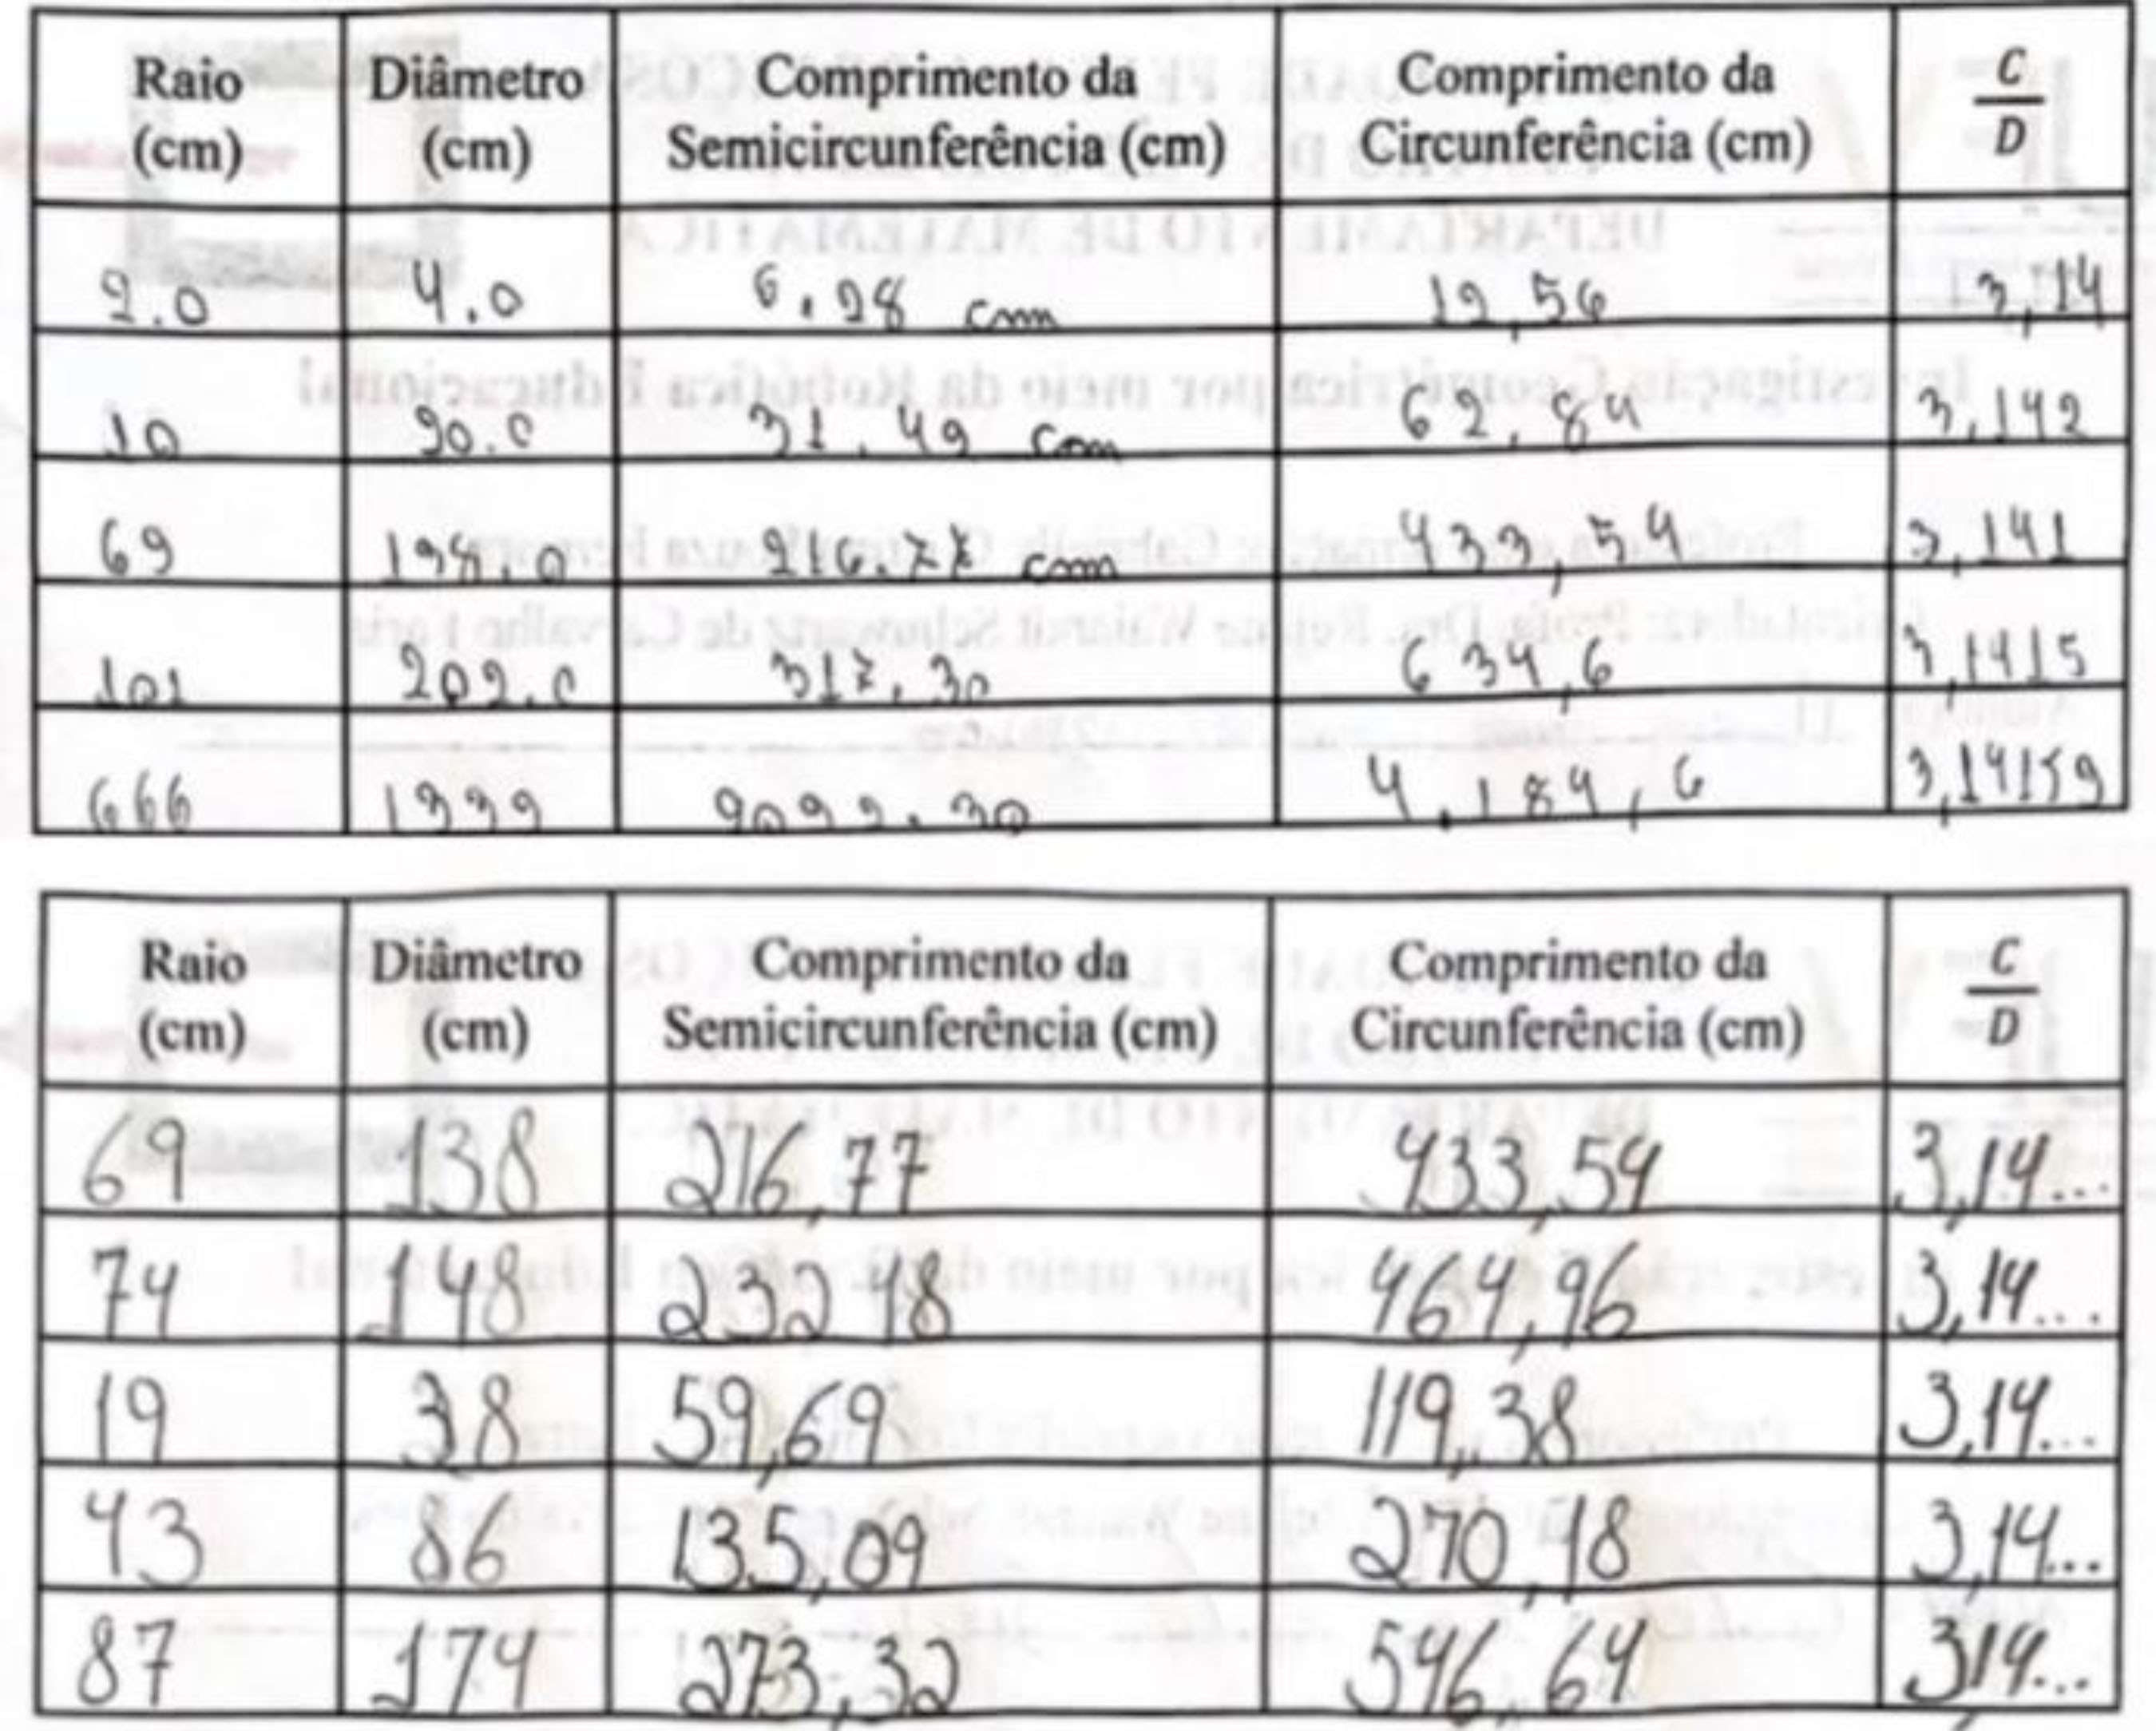 Raio (cm) Diâmetro (cm) Comprimento da Semicircunferência (cm) Comprimento da Circunferência (cm) C/D
2.0 4.0 6.28 cm 12,56 3,14
10 20.0 31.42 cm 62,84 3,142
69 138.0 216.77 cm 433,54 3,141
101 202.0 317.30 634,6 3,1415
666 1332 2092.30 4.184,6 3,14159
Raio (cm) Diâmetro (cm) Comprimento da Semicircunferência (cm) Comprimento da Circunferência (cm) C/D
69 138 216,77 433,54 3,14...
74 148 232 48 464,96 3,14...
19 38 59,69 119,38 3,14...
43 86 135,09 270,18 3,14...
87 174 273,32 546,64 3,14...